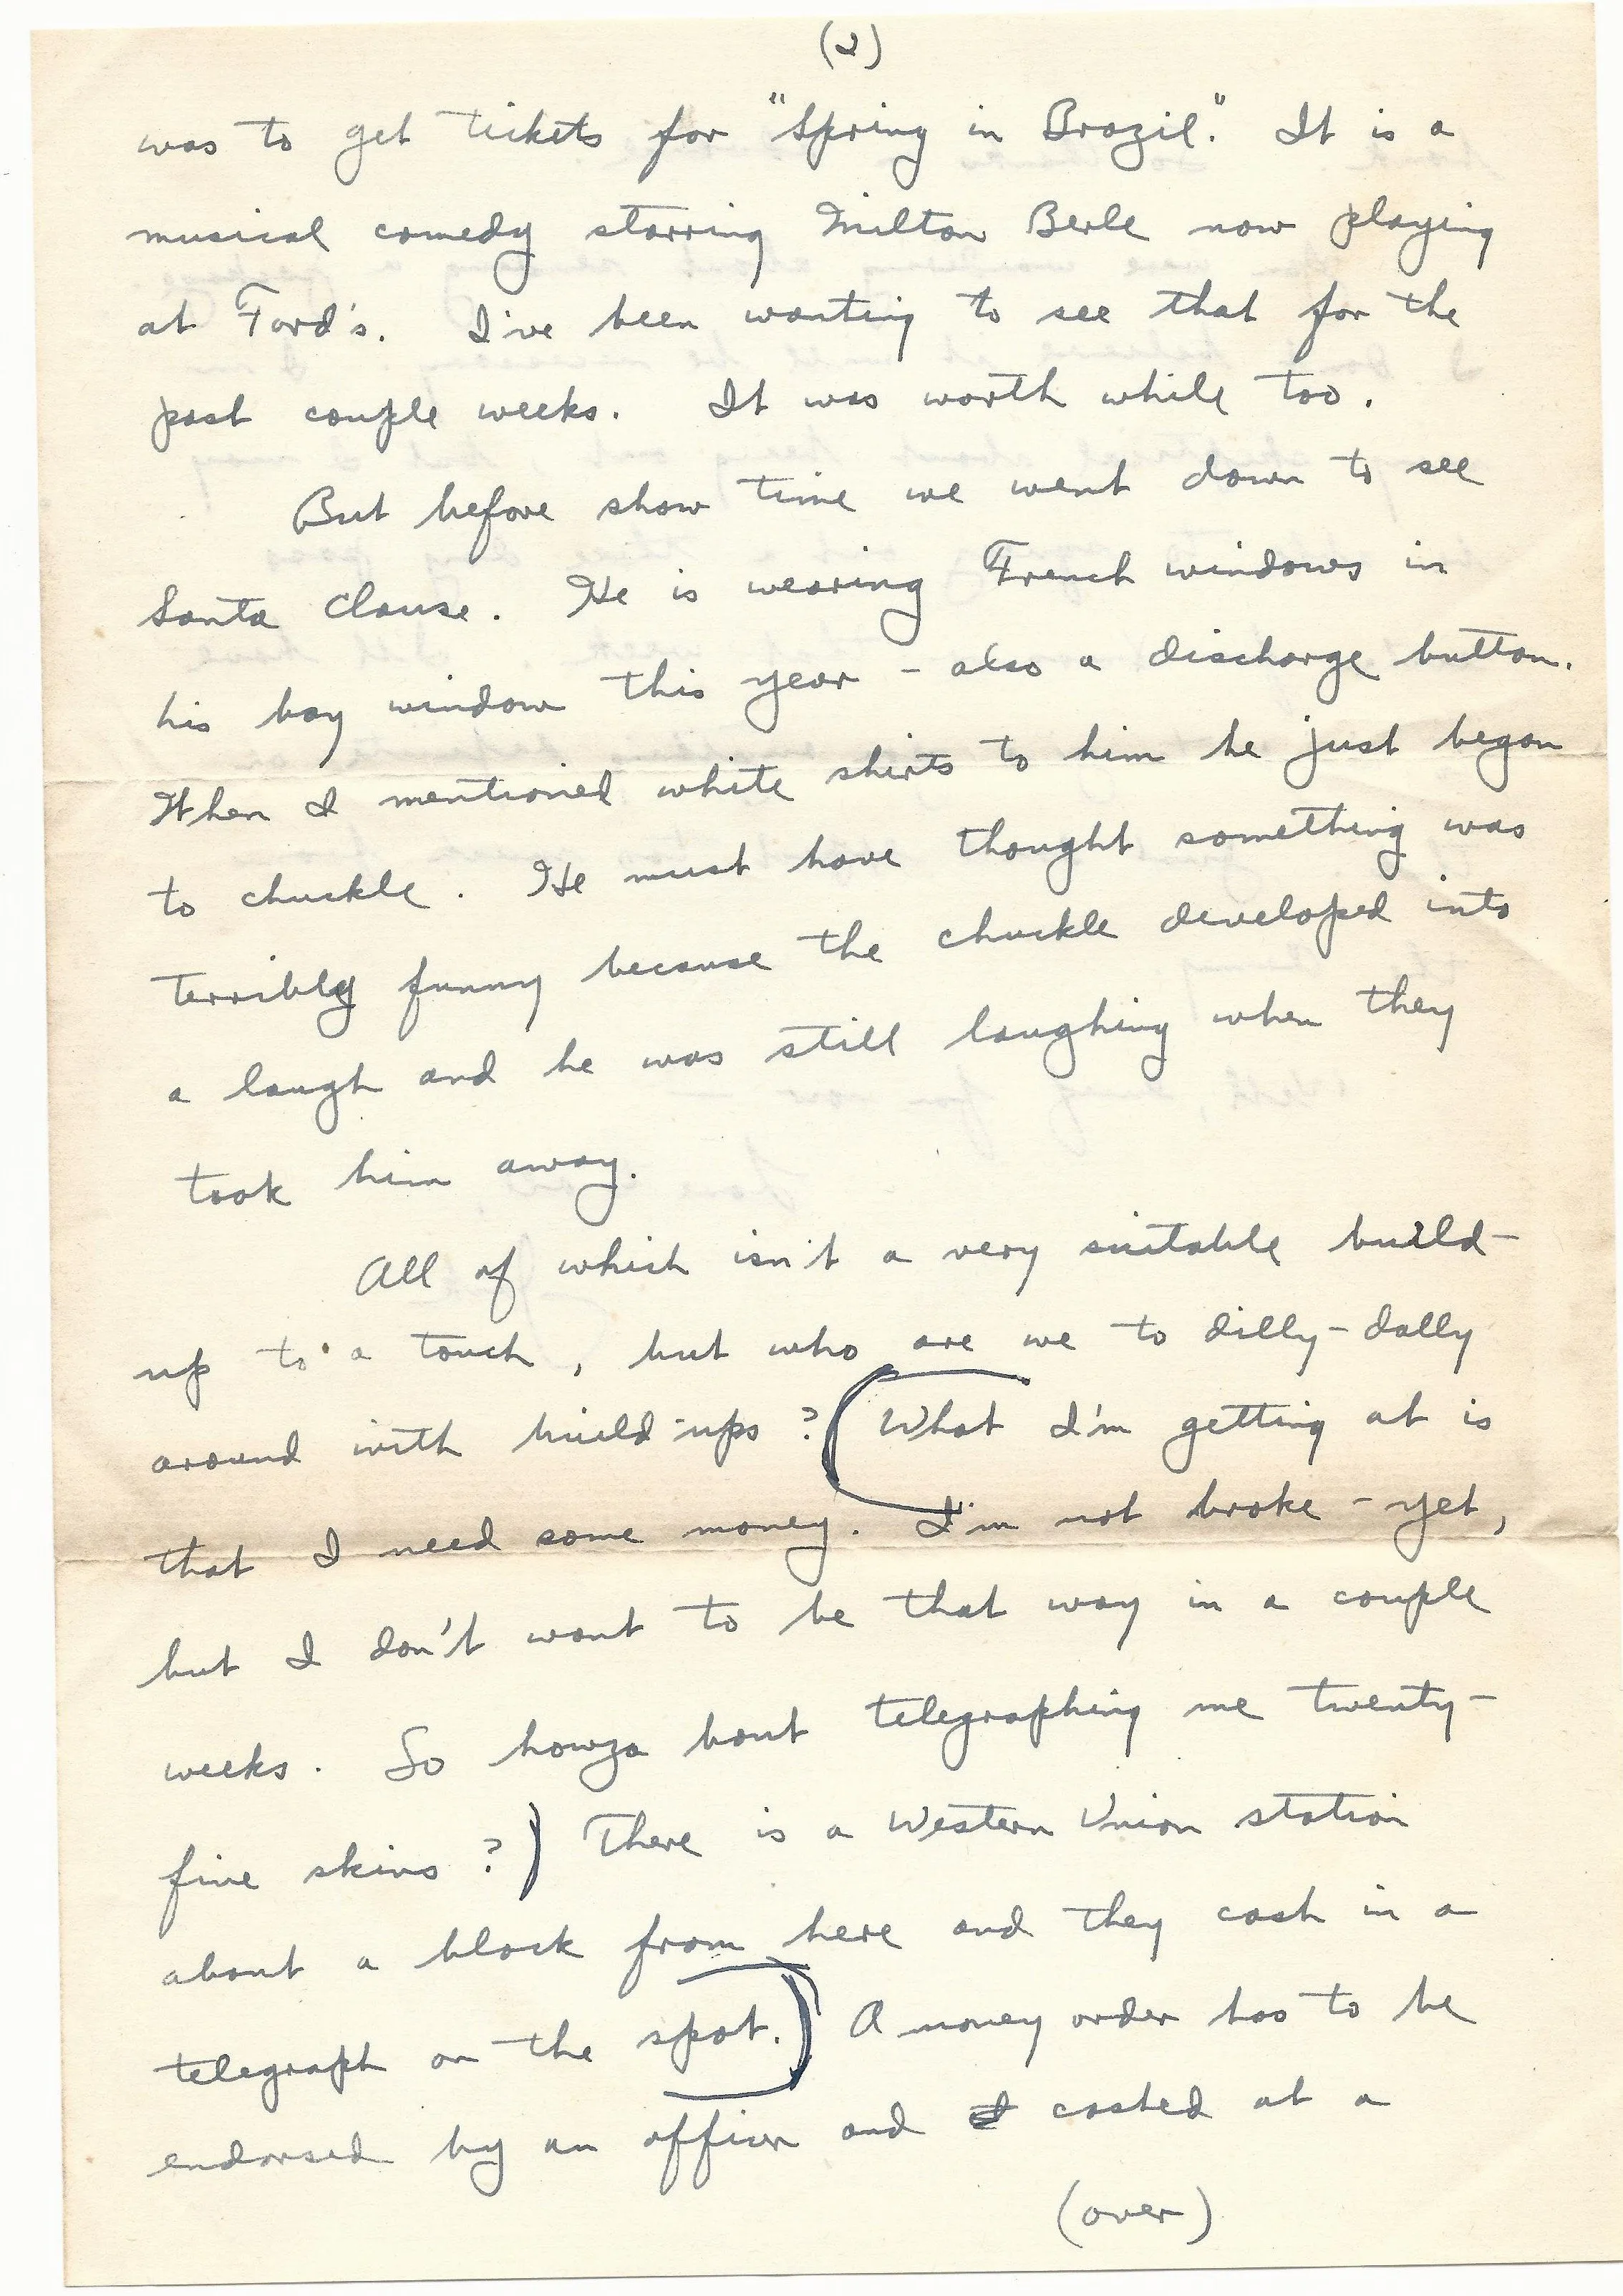 (2)
was to get tickets for "Spring in Brazil." It is a
musical comedy starring Milton Berle now playing
at Ford's. I've been wanting to see that for the
past couple weeks. It was worth while too.
But before show time we went down to see
Santa Clause. He is wearing French windows in
his bay window this year - also a discharge button.
When I mentioned white shirts to him he just began
to chuckle. He must have thought something was
terribly funny because the chuckle developed into
a laugh and he was still laughing when they
took him away.
All of which isn't a very suitable build-
up to a touch, but who are we to dilly-dally
around with build-ups? (What I'm getting at is
that I need some money. I'm not broke - yet,
but I don't want to be that way in a couple
weeks. So howza bout telegraphing me twenty-
five skins?) There is a Western Union station
about a block from here and they cash in a
telegraph on the spot.) A money order has to be
endorsed by an officer and cashed at a
(over)